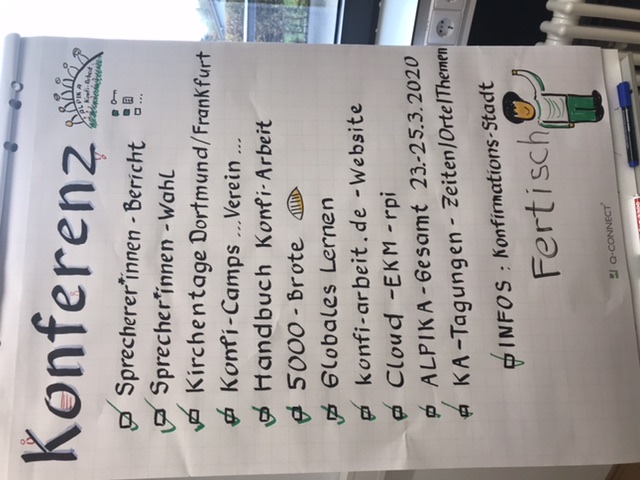 Konferenz
ALPIKA
Konfi-Arbeit
Sprecherer*innen-Bericht
Sprecher*innen-Wahl
Kirchentage Dortmund/Frankfurt
Konfi-Camps ... Verein ...
Handbuch Konfi-Arbeit
5000-Brote
Globales Lernen
konfi-arbeit.de-Website
Cloud-EKM-rpi
ALPIKA-Gesamt 23.-25.3.2020
KA-Tagungen-Zeiten/Orte/Themen
INFOS: Konfirmations-Stadt
Fertisch
Q-CONNECT